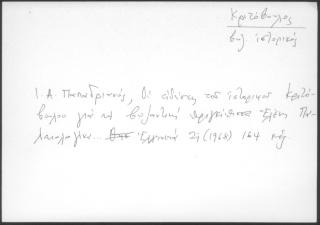 Κριτόβουλος
βυζ. ἱστορικός
Ι. Α. Παπαδριανός, Οἱ εἰδήσεις τοῦ ἱστορικοῦ Κριτό-
βουλου γιὰ τὴ βυζαντινὴ πριγκίπισσα Ἑλένη Πα-
λαιολογίνα... Ἑλληνικά 21 (1968) 164 κἑξ.